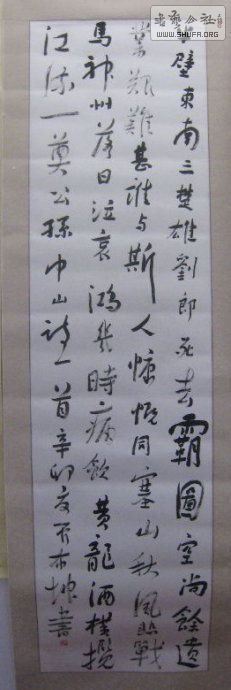 書藝公社
WWW.SHUFA.ORG
半壁東南三楚雄劉郎死去霸圖空尚餘遺
業艱難甚誰与斯人慷慨同塞山秋風悲戰
馬神州落日泣哀鴻幾時痛飲黄龍酒橫攬
江流一奠公孫中山詩一首辛卯夏書